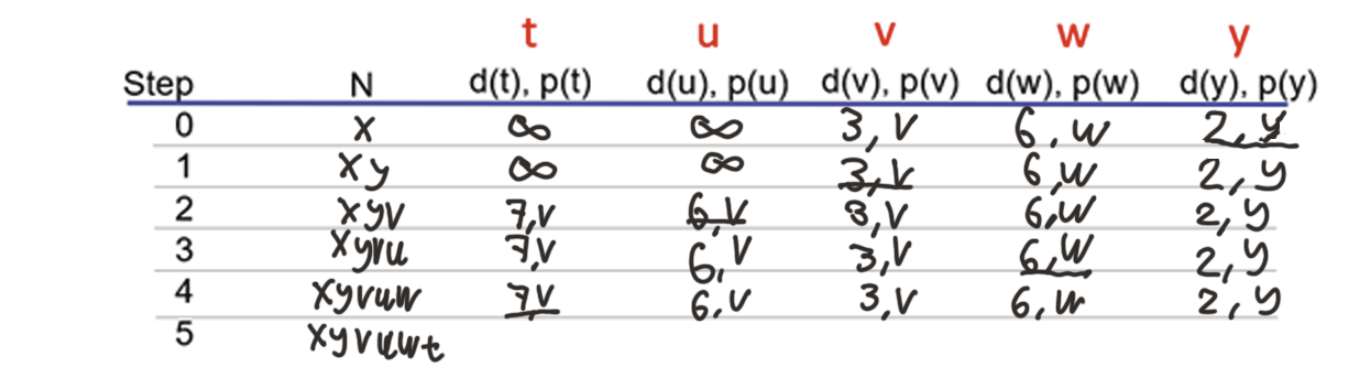 t u v w y
Step N d(t), p(t) d(u), p(u) d(v), p(v) d(w), p(w) d(y), p(y)
0 x ∞ ∞ 3,v 6,w 2,y
1 xy ∞ ∞ 3,v 6,w 2,y
2 xyv 7,v 6,v 3,v 6,w 2,y
3 xyvu 7,v 6,v 3,v 6,w 2,y
4 xyvuw 7,v 6,v 3,v 6,w 2,y
5 xyvuwt